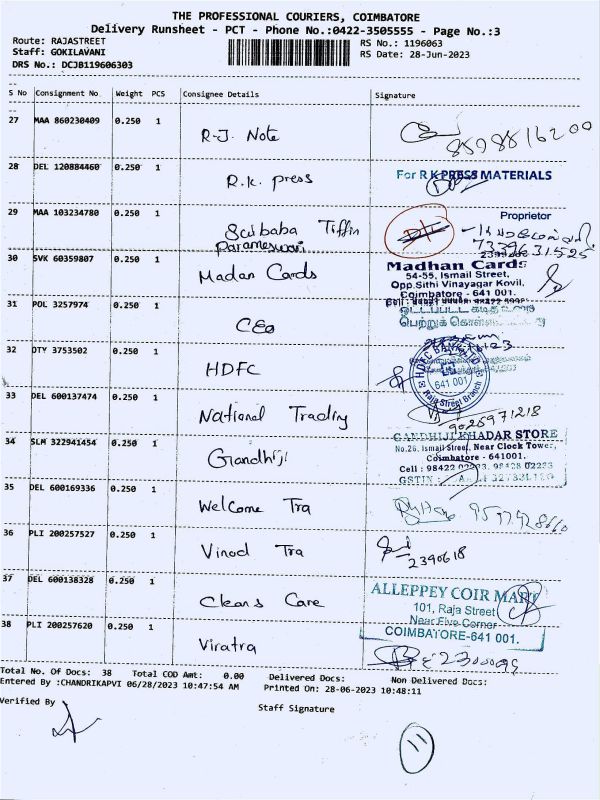 THE PROFESSIONAL COURIERS, COIMBATORE
Delivery Runsheet - PCT - Phone No.:0422-3505555 - Page No.:3
Route: RAJASTREET
Staff: GOKILAVANI
DRS No.: DCJB119606303
RS No.: 1196063
RS Date: 28-Jun-2023
S No Consignment No. Weight PCS Consignee Details Signature
27 MAA 860230409 0.250 1 R-J. Note
8598816200
28 DEL 120884460 0.250 1 R.K. press
For R K PRESS MATERIALS
Proprietor
29 MAA 103234780 0.250 1 Saibaba Tiffin
Parameswari
7339631525
30 SVK 60359807 0.250 1 Madan Cards
Madhan Cards
54-55, Ismail Street,
Opp.Sithi Vinayagar Kovil,
Coimbatore - 641 001.
31 POL 3257974 0.250 1 CEO
32 DTY 3753502 0.250 1 HDFC
HDFC BANK LTD
641 001
Raja Street Branch
33 DEL 600137474 0.250 1 National Trading
9025971218
34 SLM 322941454 0.250 1 Gandhiji
GANDHIJI KHADAR STORE
No.26, Ismail Street, Near Clock Tower,
Coimbatore - 641001.
Cell : 98422 02223, 98428 02223
GSTIN :
35 DEL 600169336 0.250 1 Welcome Tra
36 PLI 200257527 0.250 1 Vinod Tra
2390618
37 DEL 600138328 0.250 1 Cleans Care
ALLEPPEY COIR MART
101, Raja Street
Near Five Corner
COIMBATORE-641 001.
38 PLI 200257620 0.250 1 Viratra
Total No. Of Docs: 38 Total COD Amt: 0.00 Delivered Docs: Non Delivered Docs:
Entered By :CHANDRIKAPVI 06/28/2023 10:47:54 AM Printed On: 28-06-2023 10:48:11
Verified By
Staff Signature
11